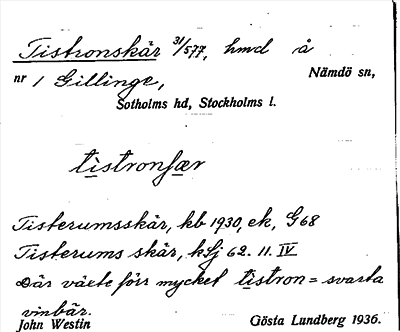 Tistronskär 31/577, hmd å
nr 1 Gillinge, Nämdö sn,
Sotholms hd, Stockholms l.
tistronſær
Tisterumsskär, kb 1930, ek, G68
Tisterums skär, kSj 62. 11. IV
Där växte förr mycket tistron = svarta
vinbär.
John Westin Gösta Lundberg 1936.